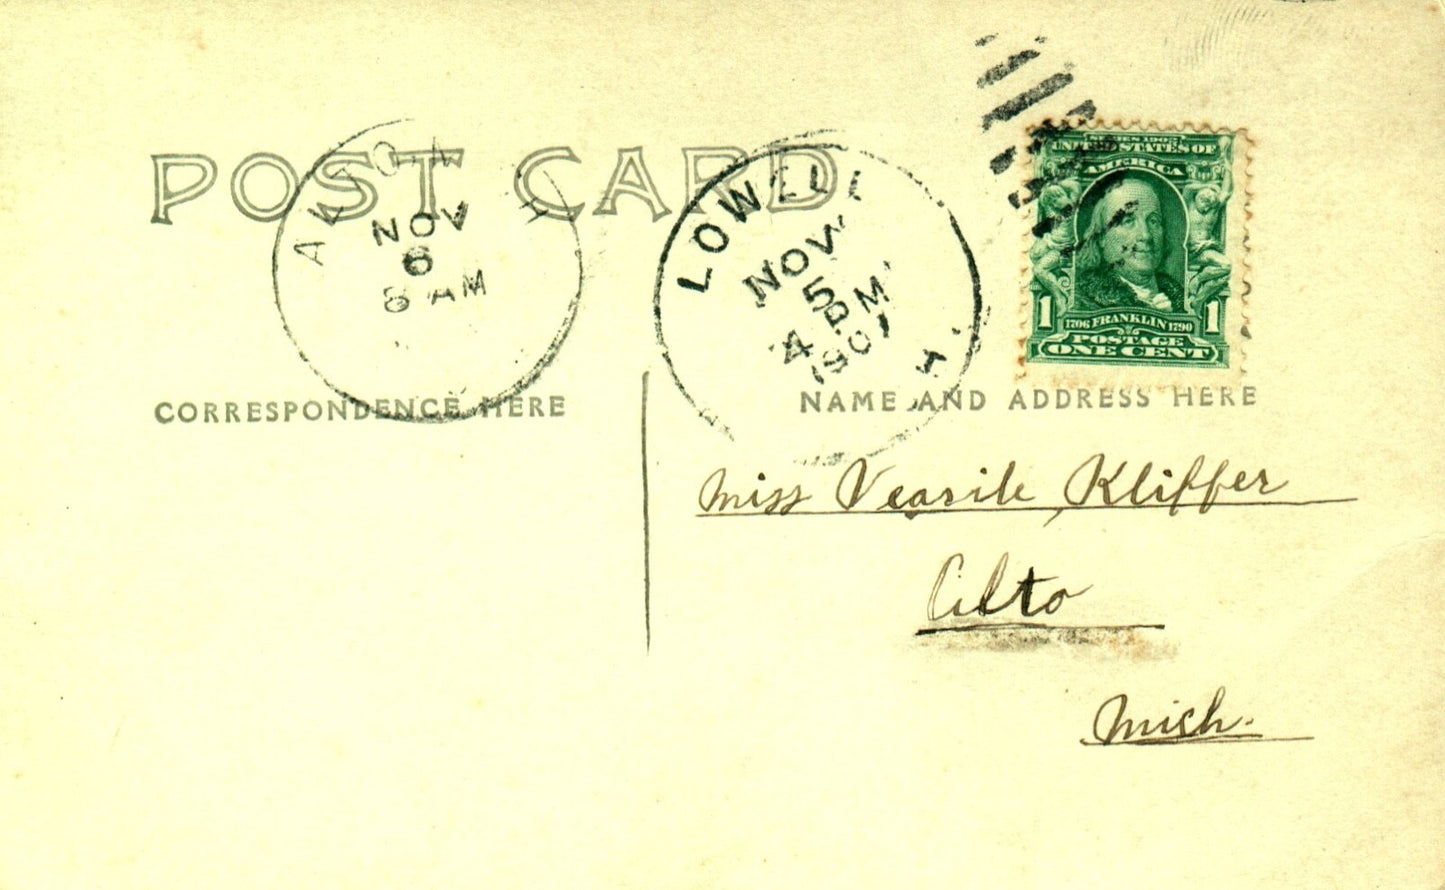 POST CARD
NOV
6
8 AM
LOWELL
NOV
5
4 PM
1907
SERIES 1902
UNITED STATES OF
AMERICA
1 1
1706 FRANKLIN 1790
POSTAGE
ONE CENT
CORRESPONDENCE HERE
NAME AND ADDRESS HERE
Miss Kliffer
Alto
Mich.